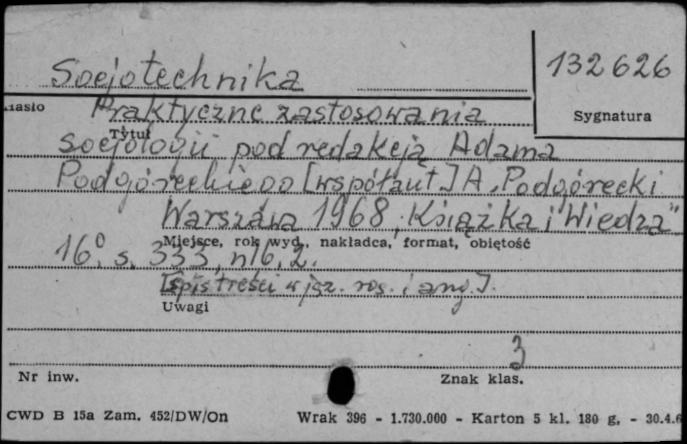 Socjotechnika
132626
Sygnatura
Praktyczne zastosowania
Tytuł
socjologii pod redakcją Adama
Podgóreckiego [współaut.] A. Podgórecki
Warszawa 1968, "Książka i Wiedza"
Miejsce, rok wyd., nakładca, format, objętość
16°, s. 333, nlb, 2.
[spis treści w jęz. ros. i ang.].
Uwagi
3
Nr inw.
Znak klas.
CWD B 15a Zam. 452/DW/On Wrak 396 - 1.730.000 - Karton 5 kl. 180 g. - 30.4.6